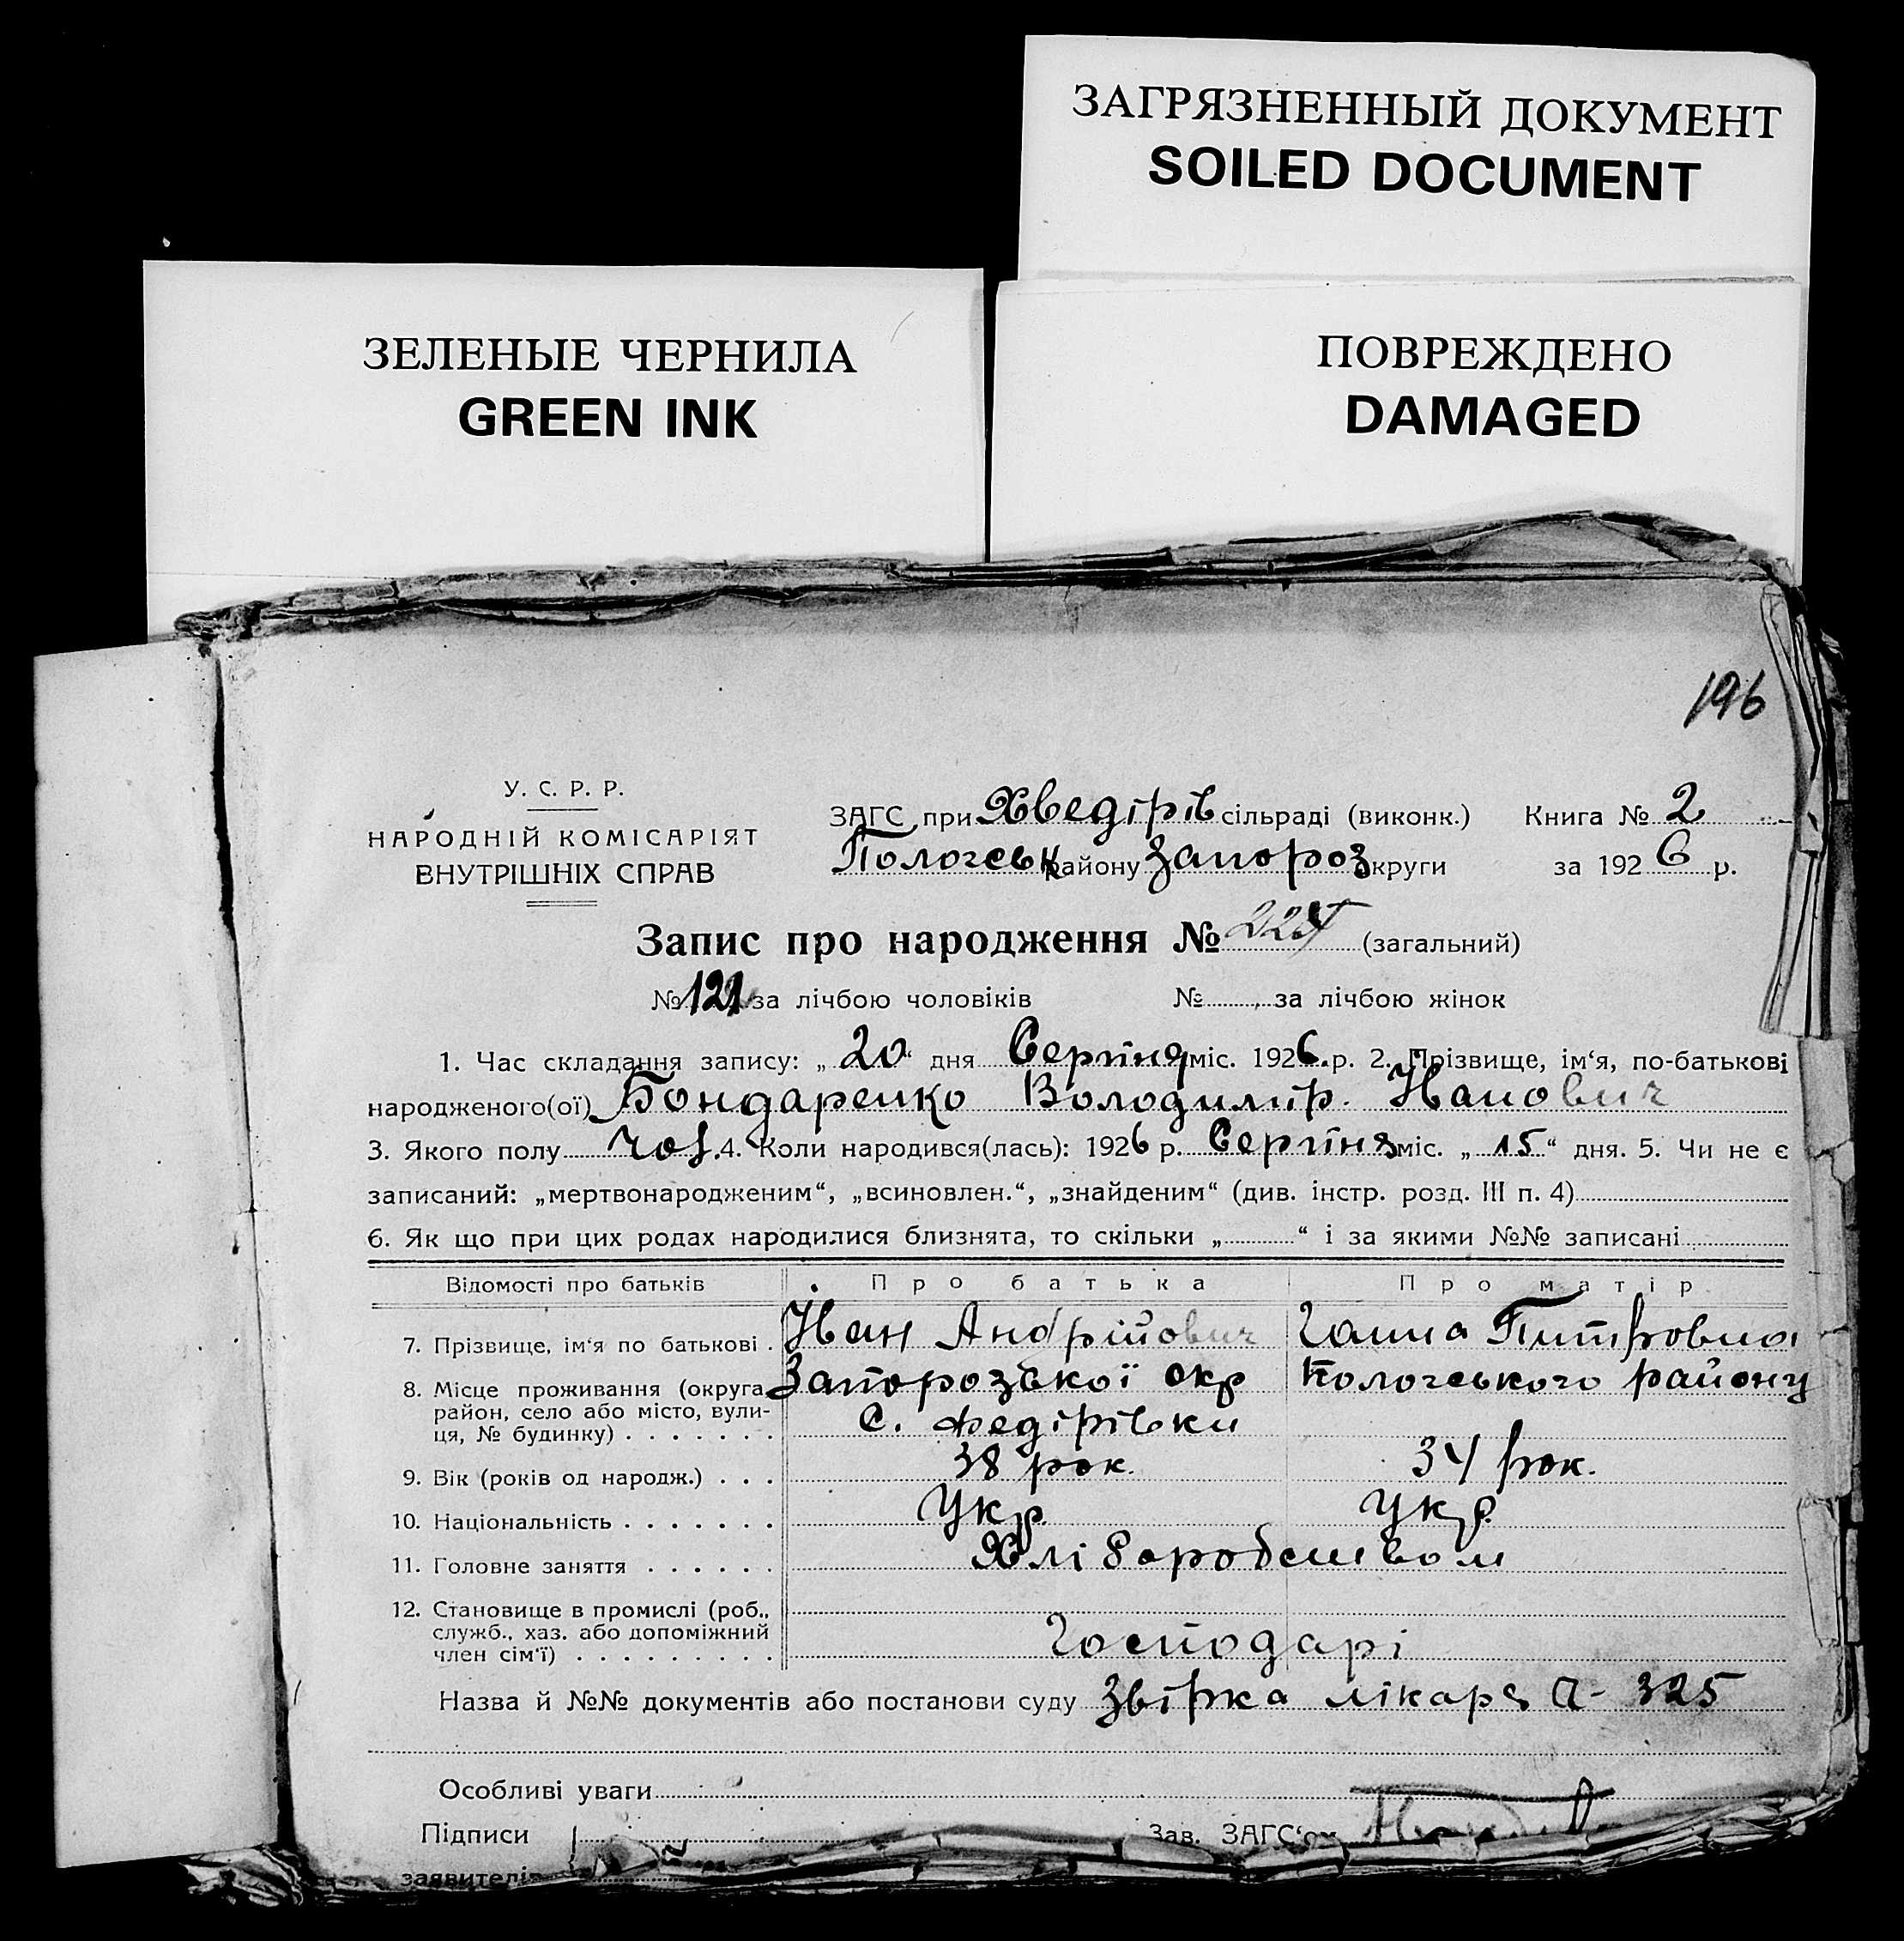 ЗАГРЯЗНЕННЫЙ ДОКУМЕНТ
SOILED DOCUMENT
ЗЕЛЕНЫЕ ЧЕРНИЛА
GREEN INK
ПОВРЕЖДЕНО
DAMAGED
196
У. С. Р. Р.
НАРОДНІЙ КОМІСАРІЯТ
ВНУТРІШНІХ СПРАВ
ЗАГС при Хведірів сільраді (виконк.) Книга № 2
Пологськ району Запороз округи за 1926 р.
Запис про народження № (загальний)
№ 121 за лічбою чоловіків № за лічбою жінок
1. Час складання запису: „ 20 “ дня Серпня міс. 1926. р. 2. Прізвище, ім‘я, по-батькові
народженого(ої) Бондаренко Володимір. Иванович
3. Якого полу чол. 4. Коли народився(лась): 1926 р. Серпіня міс. „ 15 “ дня. 5. Чи не є
записаний: „мертвонародженим“, „всиновлен.“, „знайденим“ (див. інстр. розд. III п. 4)
6. Як що при цих родах народилися близнята, то скільки „ “ і за якими №№ записані
Відомості про батьків Про батька Про матір
7. Прізвище, ім‘я по батькові . Иван Андрійович Ганна Питровна
8. Місце проживання (округа, Запорозської окр Пологського району
район, село або місто, вули-
ця, № будинку) . . . . . . . С. Федірівки
9. Вік (років од народж.) . . . 38 рок. 34 рок.
10. Національність . . . . . . . Укр. Укр.
11. Головне заняття . . . . . . Хліборобством
12. Становище в промислі (роб.,
служб., хаз. або допоміжний
член сім‘ї) . . . . . . . . . Господарі
Назва й №№ документів або постанови суду Звірка лікаря А- 325
Особливі уваги
Підписи Зав. ЗАГС‘ом
заявителів